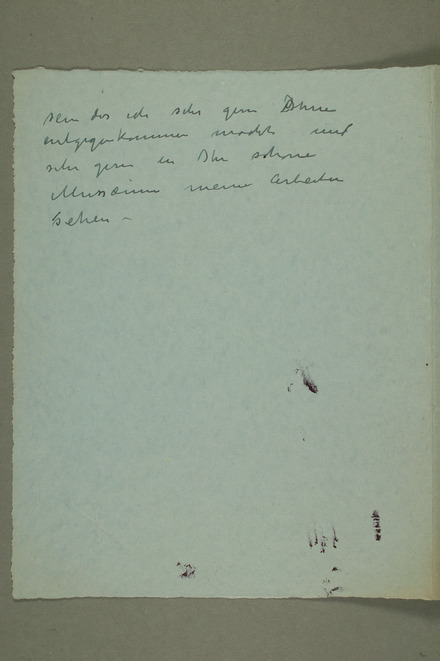 sein das ich sehr gern Ihne
entgegenkommen mochte und
sehr gern in Ihr schone
Mussæum meine Arbeiten
sehen –